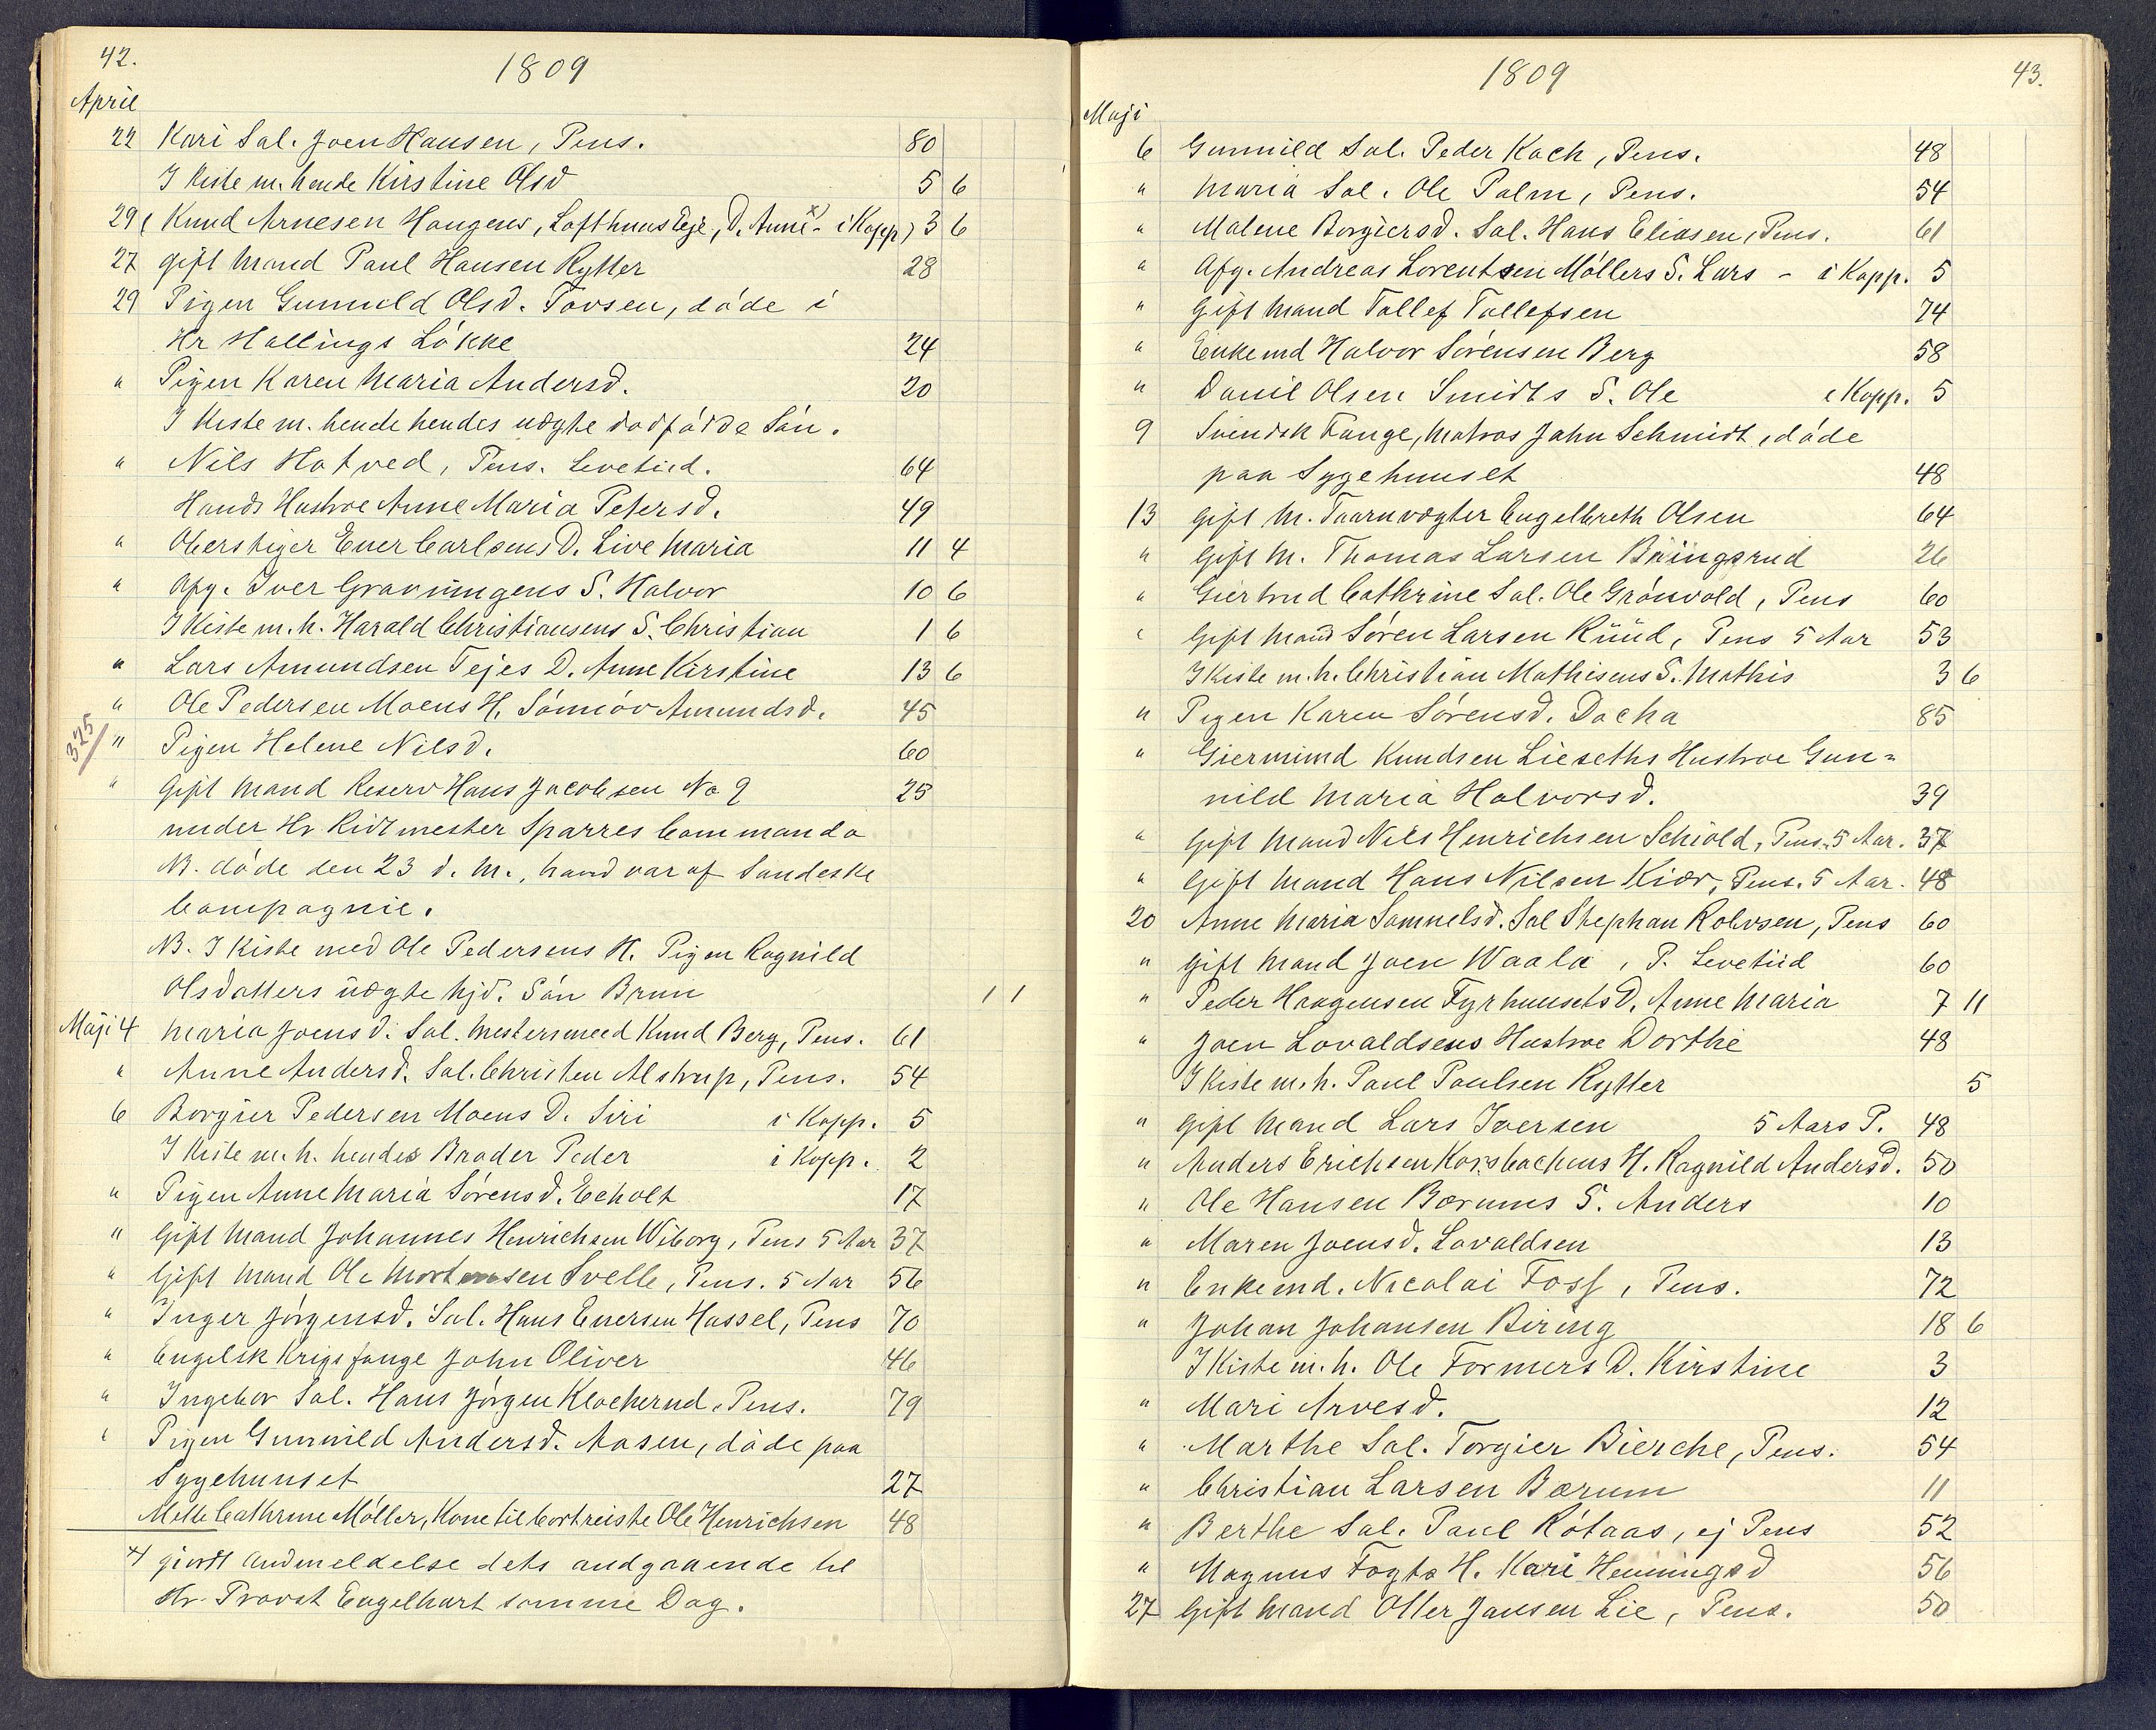 42.
1809
April
22 Kari Sal. Joen Hansen, Pens. 80
I Kiste m. hende Kirstine Olsd 5 6
29 ( Knud Arnesen Haugens, Lofthuus Eje, D. Anne x) - i Kopp) 3 6
27 gift Mand Paul Hansen Rytter 28
29 Pigen Gunnild Olsd. Tovsen, döde i
Hr Hallings Lökke 24
" Pigen Karen Maria Andersd. 20
I Kiste m. hende hendes uægte dødfödde Sön.
" Nils Hotved, Pens. Levetiid. 64
Hands Hustroe Anne Maria Petersd. 49
" Oberstiger Ener Carlsens D. Live Maria 11 4
" Afg. Iver Gravningens S. Halvor 10 6
I Kiste m. h. Harald Christiansens S. Christian 1 6
" Lars Amundsen Tejes D. Anne Kirstine 13 6
" Ole Pedersen Moens H. Sömöv Amundsd. 45
325/ " Pigen Helene Nilsd. 60
" Gift Mand Reserv Hans Jacobsen No 9 25
under Hr Ridtmester Sparres Commando
NB. döde den 23 d. M., hand var af Sandeske
Compagnie.
NB. I Kiste med Ole Pedersens H. Pigen Ragnild
Olsdatters uægte hjd. Sön Brun 1 1
Maji 4 Maria Joensd. Sal. Mestersmed Knud Berg, Pens. 61
" Anne Andersd. Sal. Christen Alstrup, Pens. 54
6 Borgier Pedersen Moens D. Siri i Kopp. 5
I Kiste m. h. hendes Broder Peder i Kopp. 2
" Pigen Anne Maria Sörensd. Echolt 17
" Gift Mand Johannes Henrichsen Wiborg, Pens 5 Aar 37
" Gift Mand Ole Mortensen Svelle, Pens. 5 Aar 56
" Inger Jörgensd. Sal. Hans Enersen Hassel, Pens 70
" Engelsk Krigsfange John Oliver 46
" Ingebor Sal. Hans Jörgen Klockerud, Pens. 79
" Pigen Gunnild Andersd. Aasen, döde paa
Sygehuuset 27
Mette Cathrine Möller, Kone til bortreiste Ole Henrichsen 48
x) giordt Andmeldelse dets andgaaende til
Hr. Provst Engelhart samme Dag.
1809
43.
Maji
6 Gunnild Sal. Peder Koch, Pens. 48
" Maria Sal. Ole Palm, Pens. 54
" Malene Borgiersd. Sal. Hans Eliasen, Pens. 61
" Afg. Andreas Lorentsen Möllers S. Lars - i Kopp. 5
" Gift Mand Tollef Tollefsen 74
" Enkemd Halvor Sörensen Berg 58
" Daniel Olsen Smidts S. Ole i Kopp. 5
9 Svendsk Fange, Matros John Schmidt, döde
paa Sygehuuset 48
13 Gift M. Taarnvægter Engelbreth Olsen 64
" Gift M. Thomas Larsen Büingsrud 26
" Giertrud Cathrine Sal. Ole Grönvold, Pens 60
" Gift Mand Sören Larsen Rüüd, Pens 5 Aar 53
I Kiste m. h. Christian Mathisens S. Mathis 3 6
" Pigen Karen Sörensd. Docka 85
" Giermund Knudsen Lieseths Hustroe Gun=
nild Maria Halvorsd. 39
" Gift Mand Nils Henrichsen Schiold, Pens. 5 Aar. 37
" Gift Mand Hans Nilsen Kiær, Pens. 5 Aar. 48
20 Anne Maria Samuelsd. Sal Stephan Rolvsen, Pens 60
" Gift Mand Joen Waala, P. Levetiid 60
" Peder Haagensen Fyrhuusets D. Anne Maria 7 11
" Joen Lovaldsens Hustroe Dorthe 48
I Kiste m. h. Paul Paulsen Rytter 5
" Gift Mand Lars Iversen 5 Aars P. 48
" Anders Erichsen Korsbachens H. Ragnild Andersd. 50
" Ole Hansen Bærums S. Anders 10
" Maren Joensd. Lovaldsen 13
" Enkemd. Nicolai Foss, Pens. 72
" Johan Johansen Biring 18 6
I Kiste m. h. Ole Formers D. Kirstine 3
" Mari Arvesd. 12
" Marthe Sal. Torgier Bierche, Pens. 54
" Christian Larsen Bærum 11
" Berthe Sal. Paul Rötaas, ej Pens 52
" Magnus Fogts H. Kari Henningsd 56
27 Gift Mand Otter Jansen Lie, Pens. 50